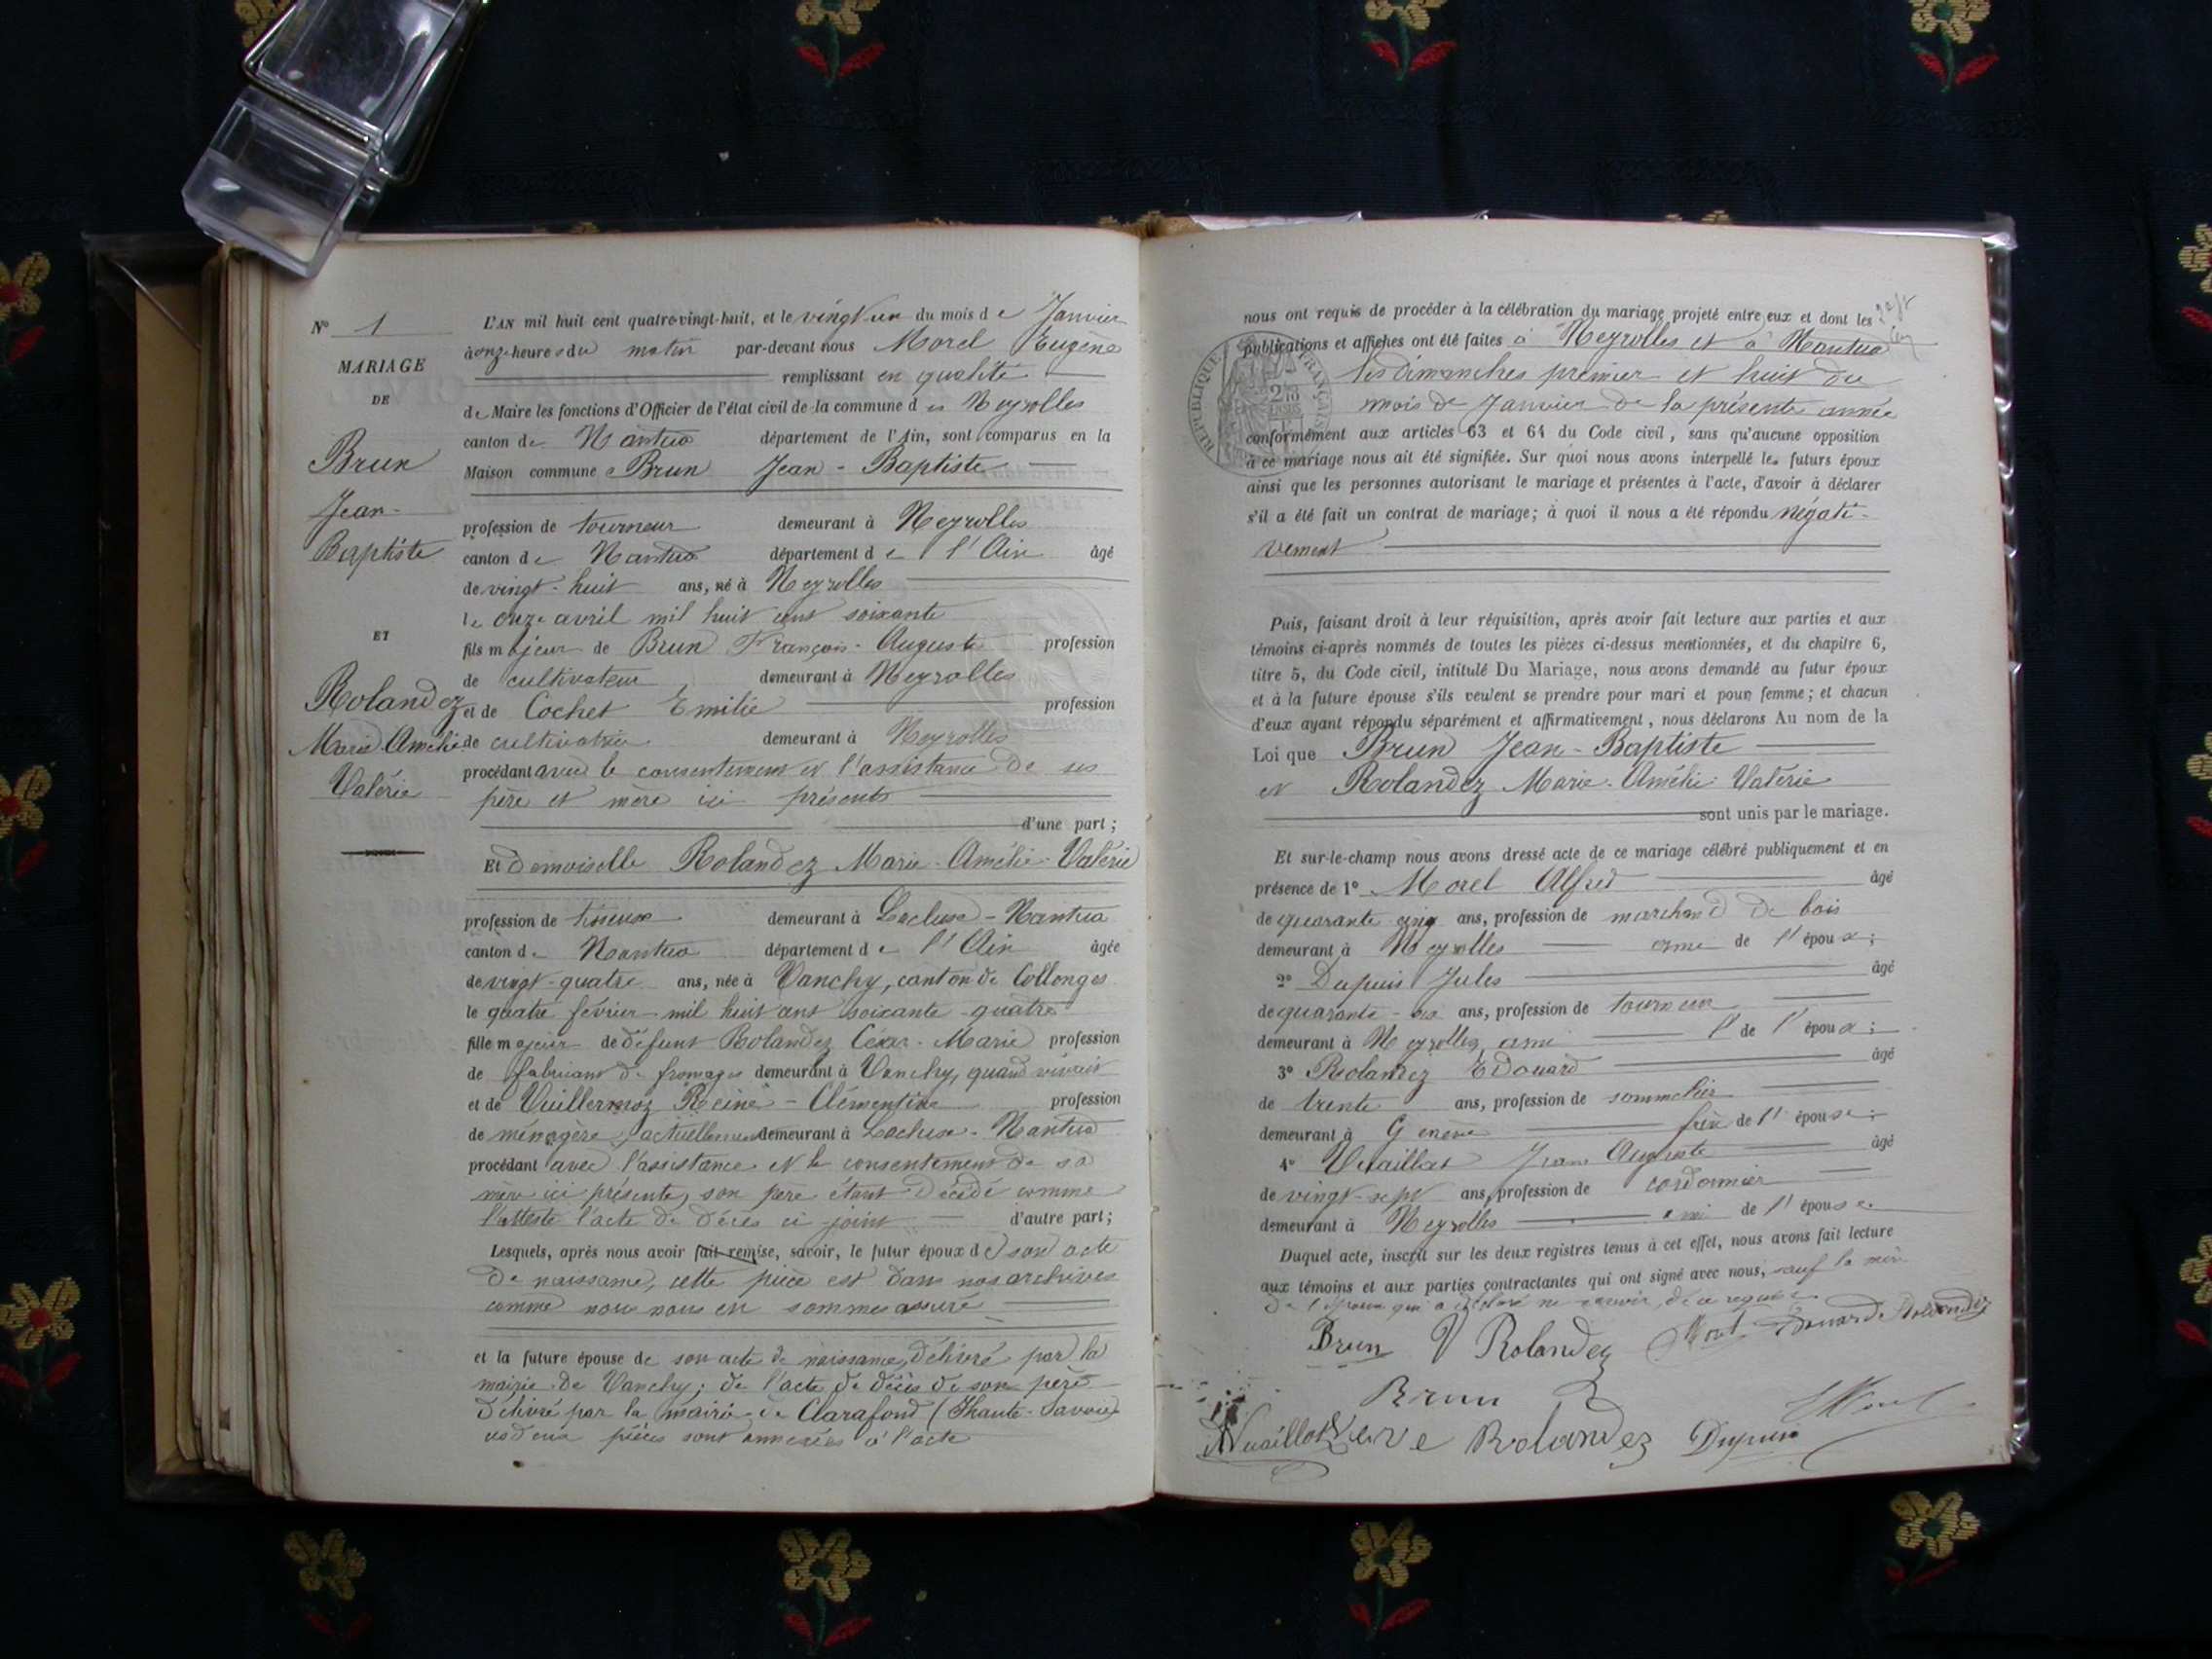 N° 1
MARIAGE
DE
Brun
Jean-
Baptiste
ET
Rolandez
Marie-Amélie
Valérie
L'AN mil huit cent quatre-vingt-huit, et le vingt un du mois de Janvier
à onze heures du matin par-devant nous Morel Eugène
remplissant en qualité
de Maire les fonctions d'Officier de l'état civil de la commune des Neyrolles
canton de Nantua département de l'Ain, sont comparus en la
Maison commune Brun Jean-Baptiste
profession de tourneur demeurant à Neyrolles
canton de Nantua département de l'Ain âgé
de vingt-huit ans, né à Neyrolles
le onze avril mil huit cent soixante
fils majeur de Brun François-Auguste profession
de cultivateur demeurant à Neyrolles
et de Cochet Emilie profession
de cultivatrice demeurant à Neyrolles
procédant avec le consentement et l'assistance de ses
père et mère ici présents
d'une part;
Et demoiselle Rolandez Marie-Amélie-Valérie
profession de tisseuse demeurant à Lacluse-Nantua
canton de Nantua département de l'Ain âgée
de vingt-quatre ans, née à Vanchy, canton de Collonges
le quatre février mil huit cent soixante-quatre
fille majeur de défunt Rolandez César-Marie profession
de fabricant de fromages demeurant à Vanchy, quand vivait
et de Vuillermoz Reine-Clémentine profession
de ménagère, actuellement demeurant à Lacluse-Nantua
procédant avec l'assistance et le consentement de sa
mère ici présente, son père étant décédé comme
l'atteste l'acte de décès ci joint d'autre part;
Lesquels, après nous avoir fait remise, savoir, le futur époux de son acte
de naissance, cette pièce est dans nos archives
comme nous nous en sommes assuré
et la future épouse de son acte de naissance, délivré par la
mairie de Vanchy; de l'acte de décès de son père
délivré par la mairie de Clarafond (Haute-Savoie)
ces deux pièces sont annexées à l'acte
nous ont requis de procéder à la célébration du mariage projeté entre eux et dont les
publications et affiches ont été faites à Neyrolles et à Nantua
les dimanches premier et huit du
mois de Janvier de la présente année
RÉPUBLIQUE FRANÇAISE
conformément aux articles 63 et 64 du Code civil, sans qu'aucune opposition
à ce mariage nous ait été signifiée. Sur quoi nous avons interpellé les futurs époux
ainsi que les personnes autorisant le mariage et présentes à l'acte, d'avoir à déclarer
s'il a été fait un contrat de mariage; à quoi il nous a été répondu négati-
vement
Puis, faisant droit à leur réquisition, après avoir fait lecture aux parties et aux
témoins ci-après nommés de toutes les pièces ci-dessus mentionnées, et du chapitre 6,
titre 5, du Code civil, intitulé Du Mariage, nous avons demandé au futur époux
et à la future épouse s'ils veulent se prendre pour mari et pour femme; et chacun
d'eux ayant répondu séparément et affirmativement, nous déclarons Au nom de la
Loi que Brun Jean-Baptiste
et Rolandez Marie-Amélie-Valérie
sont unis par le mariage.
Et sur-le-champ nous avons dressé acte de ce mariage célébré publiquement et en
présence de 1° Morel Alfred âgé
de quarante cinq ans, profession de marchand de bois
demeurant à Neyrolles ami de l'époux;
2° Dupuis Jules âgé
de quarante ans, profession de tourneur
demeurant à Neyrolles, ami de l'époux;
3° Rolandez Edouard âgé
de trente ans, profession de sommelier
demeurant à Genève frère de l'épouse;
4° Vuaillat Jean Auguste âgé
de vingt-sept ans, profession de cordonnier
demeurant à Neyrolles ami de l'épouse.
Duquel acte, inscrit sur les deux registres tenus à cet effet, nous avons fait lecture
aux témoins et aux parties contractantes qui ont signé avec nous, sauf la mère
de l'époux qui a déclaré ne savoir, de ce requise
Brun V Rolandez Morel Edouard Rolandez
Brun
Vuaillat Veuve Rolandez Dupuis Morel